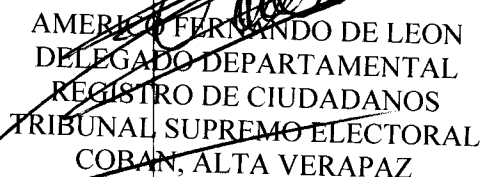 AMERICO FERNANDO DE LEON
DELEGADO DEPARTAMENTAL
REGISTRO DE CIUDADANOS
TRIBUNAL SUPREMO ELECTORAL
COBAN, ALTA VERAPAZ